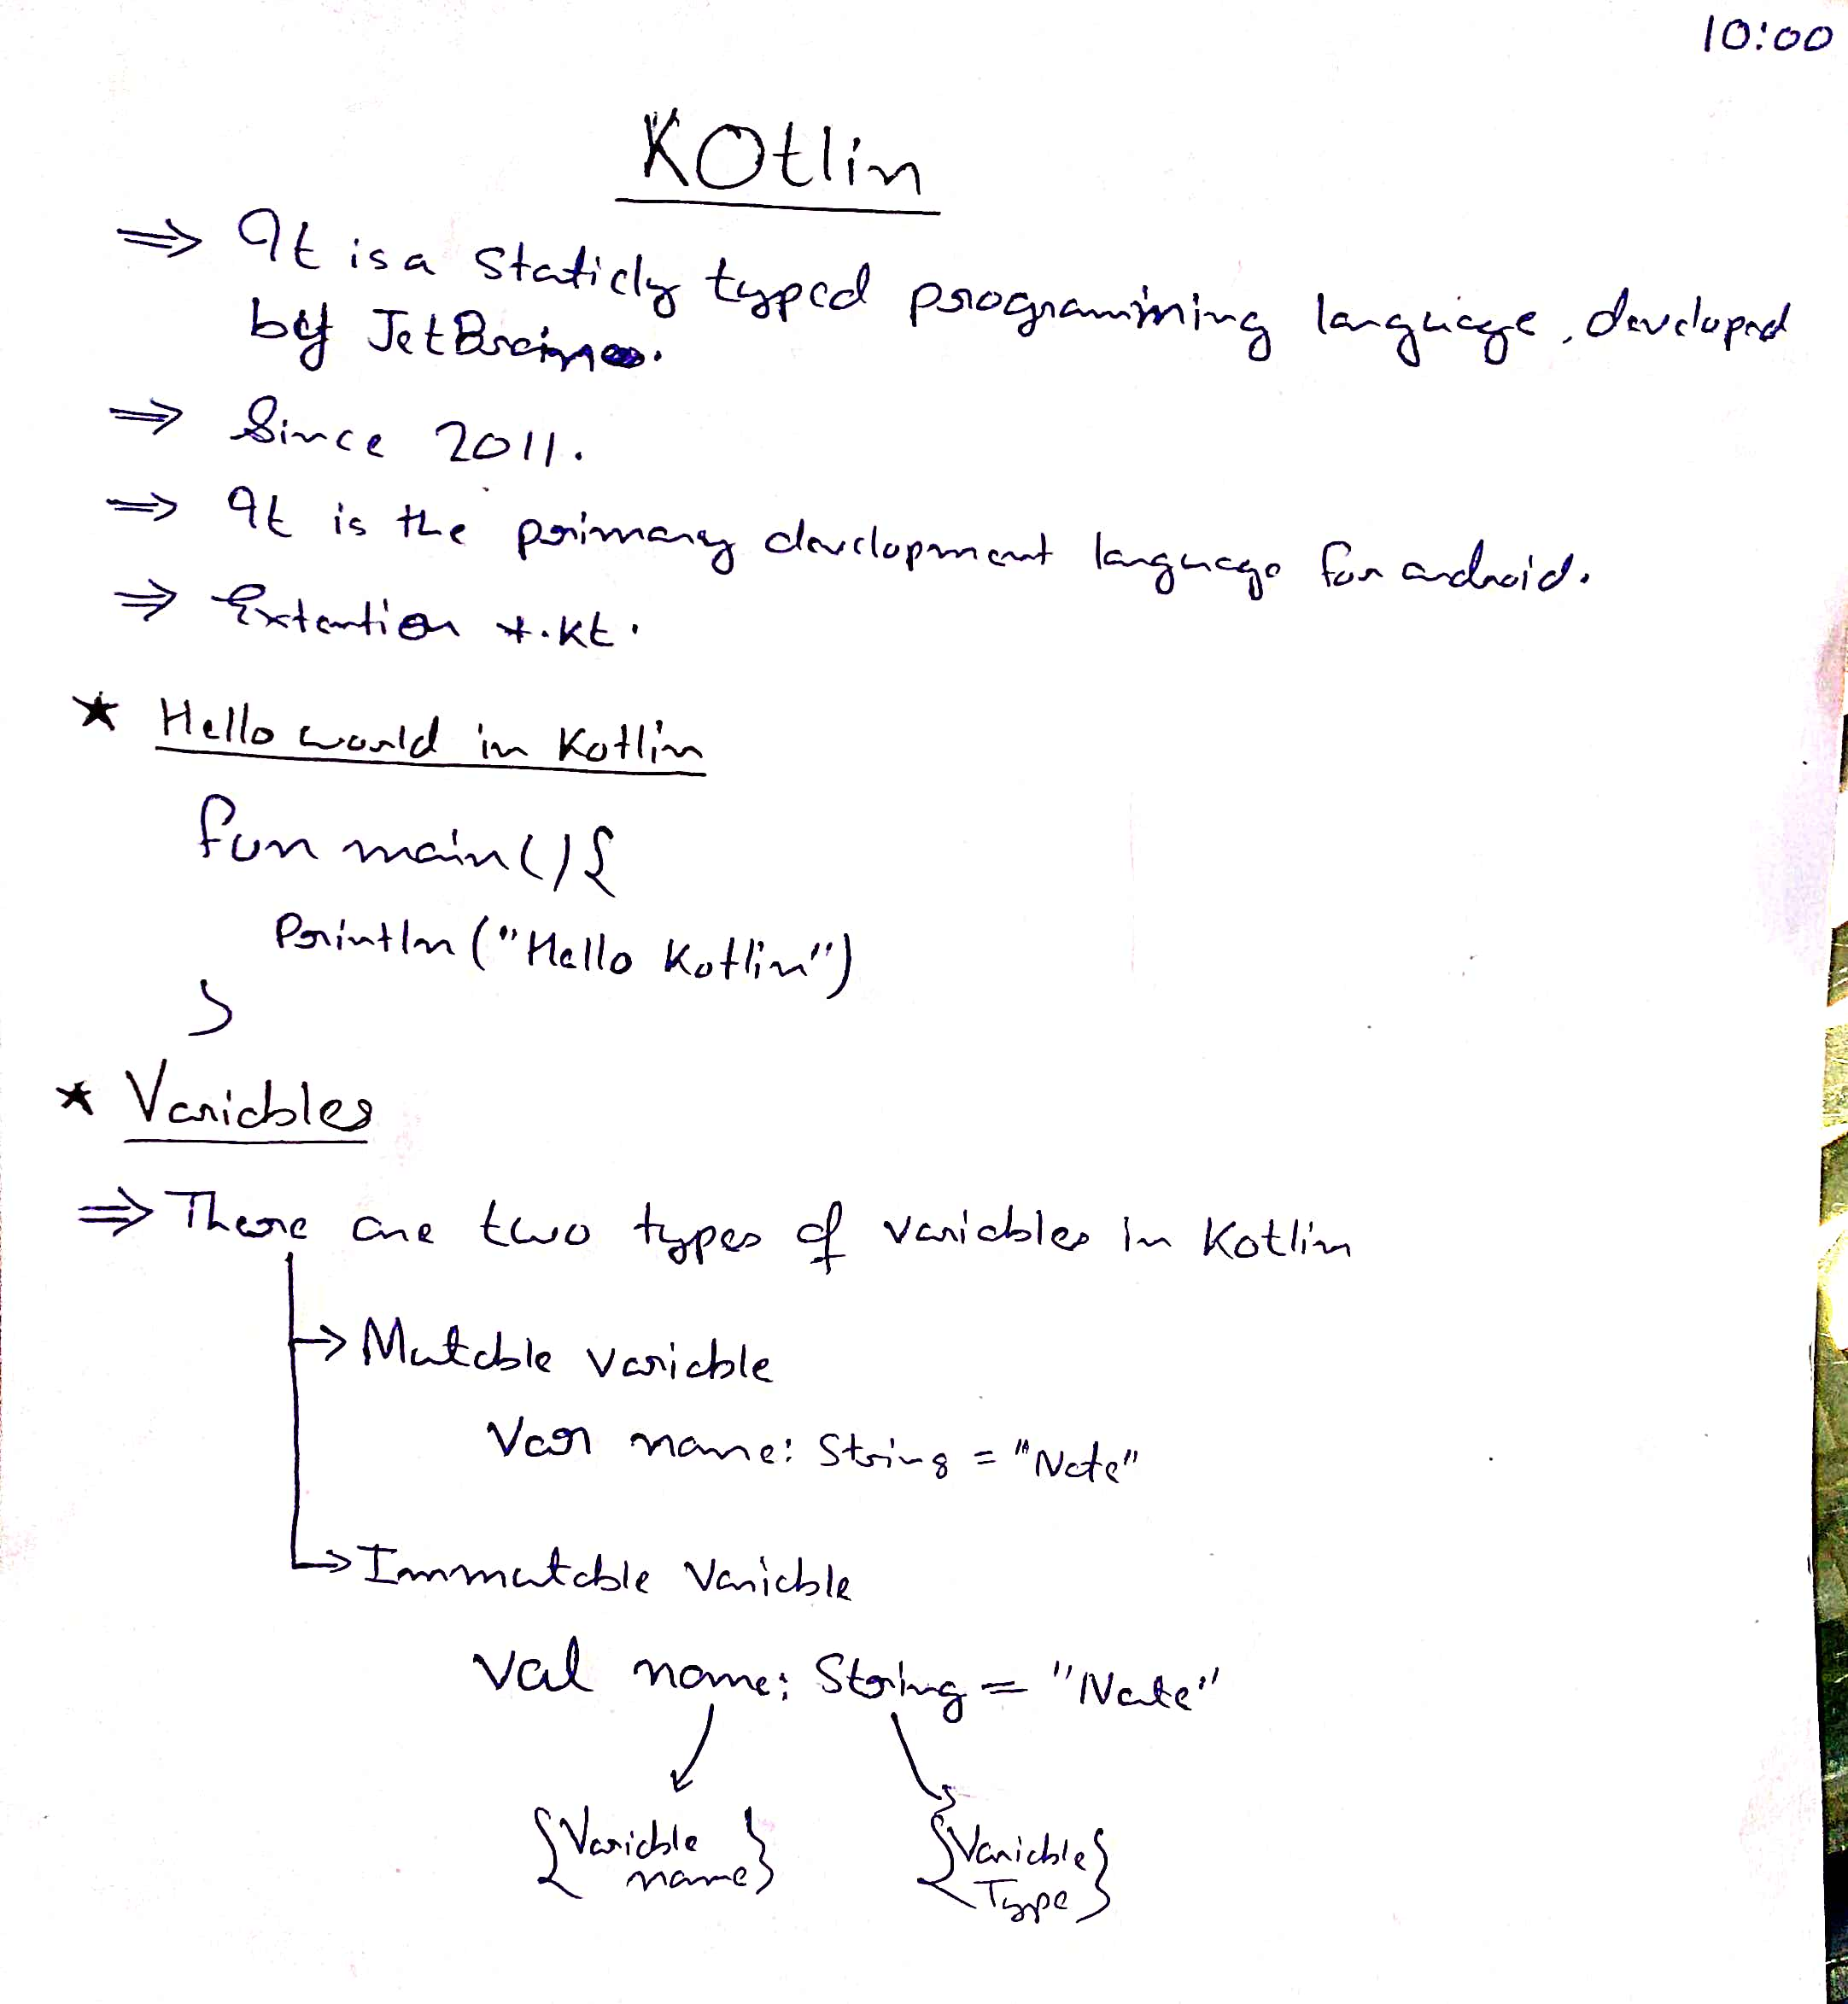 10:00
KOtlin
⇒ It is a Staticly typed programming language, developed
by JetBrains.
⇒ Since 2011.
⇒ It is the primary development language for android.
⇒ Extention *.kt.
★ Hello world in Kotlin
fun main(){
Println("Hello Kotlin")
}
★ Variables
⇒ There are two types of variables in Kotlin
→ Mutable variable
Var name: String = "Nate"
→ Immutable Variable
Val name: String = "Nate"
{Variable name} {Variable Type}